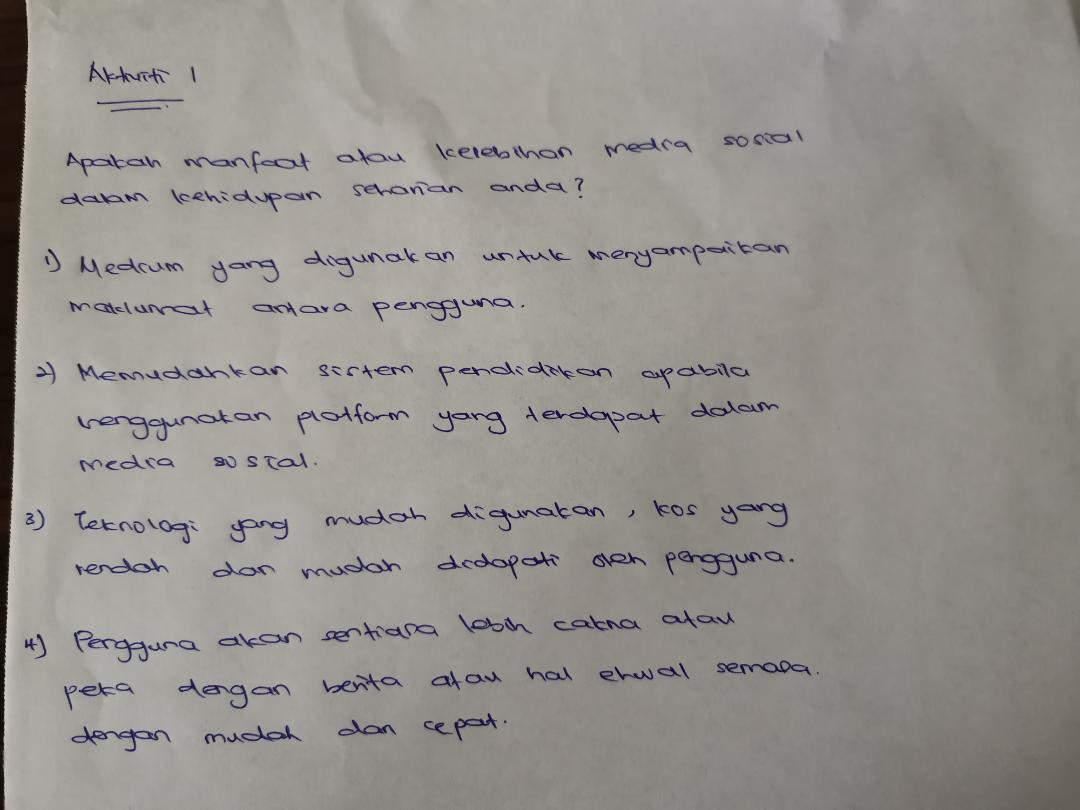 Aktiviti 1
Apakah manfaat atau kelebihan media sosial
dalam kehidupan seharian anda?
1) Medium yang digunakan untuk menyampaikan
maklumat antara pengguna.
2) Memudahkan sistem pendidikan apabila
menggunakan platform yang terdapat dalam
media sosial.
3) Teknologi yang mudah digunakan, kos yang
rendah dan mudah didapati oleh pengguna.
4) Pengguna akan sentiasa lebih cakna atau
peka dengan berita atau hal ehwal semasa.
dengan mudah dan cepat.